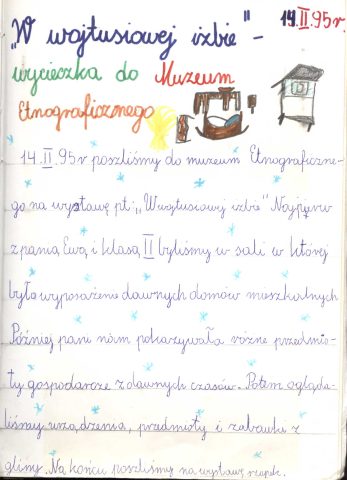 14.II.95r.
„W wojtusiowej izbie" -
wycieczka do Muzeum
Etnograficznego
14.II.95r poszliśmy do muzeum Etnograficzne-
go na wystawę pt: „W wojtusiowej izbie" Najpierw
z panią Ewą i klasą II byliśmy w sali w której
było wyposażenie dawnych domów mieszkalnych
Później pani nam pokazywała rożne przedmio-
ty gospodarcze z dawnych czasów. Potem ogląda-
liśmy urządzenia, przedmioty i zabawki z
gliny. Na końcu poszliśmy na wystawę szopek.